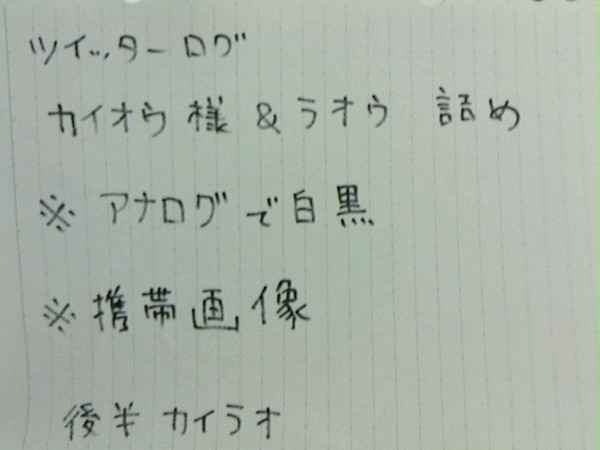 ツイッターログ
カイオウ様&ラオウ 詰め
※アナログで白黒
※携帯画像
後半カイラオ